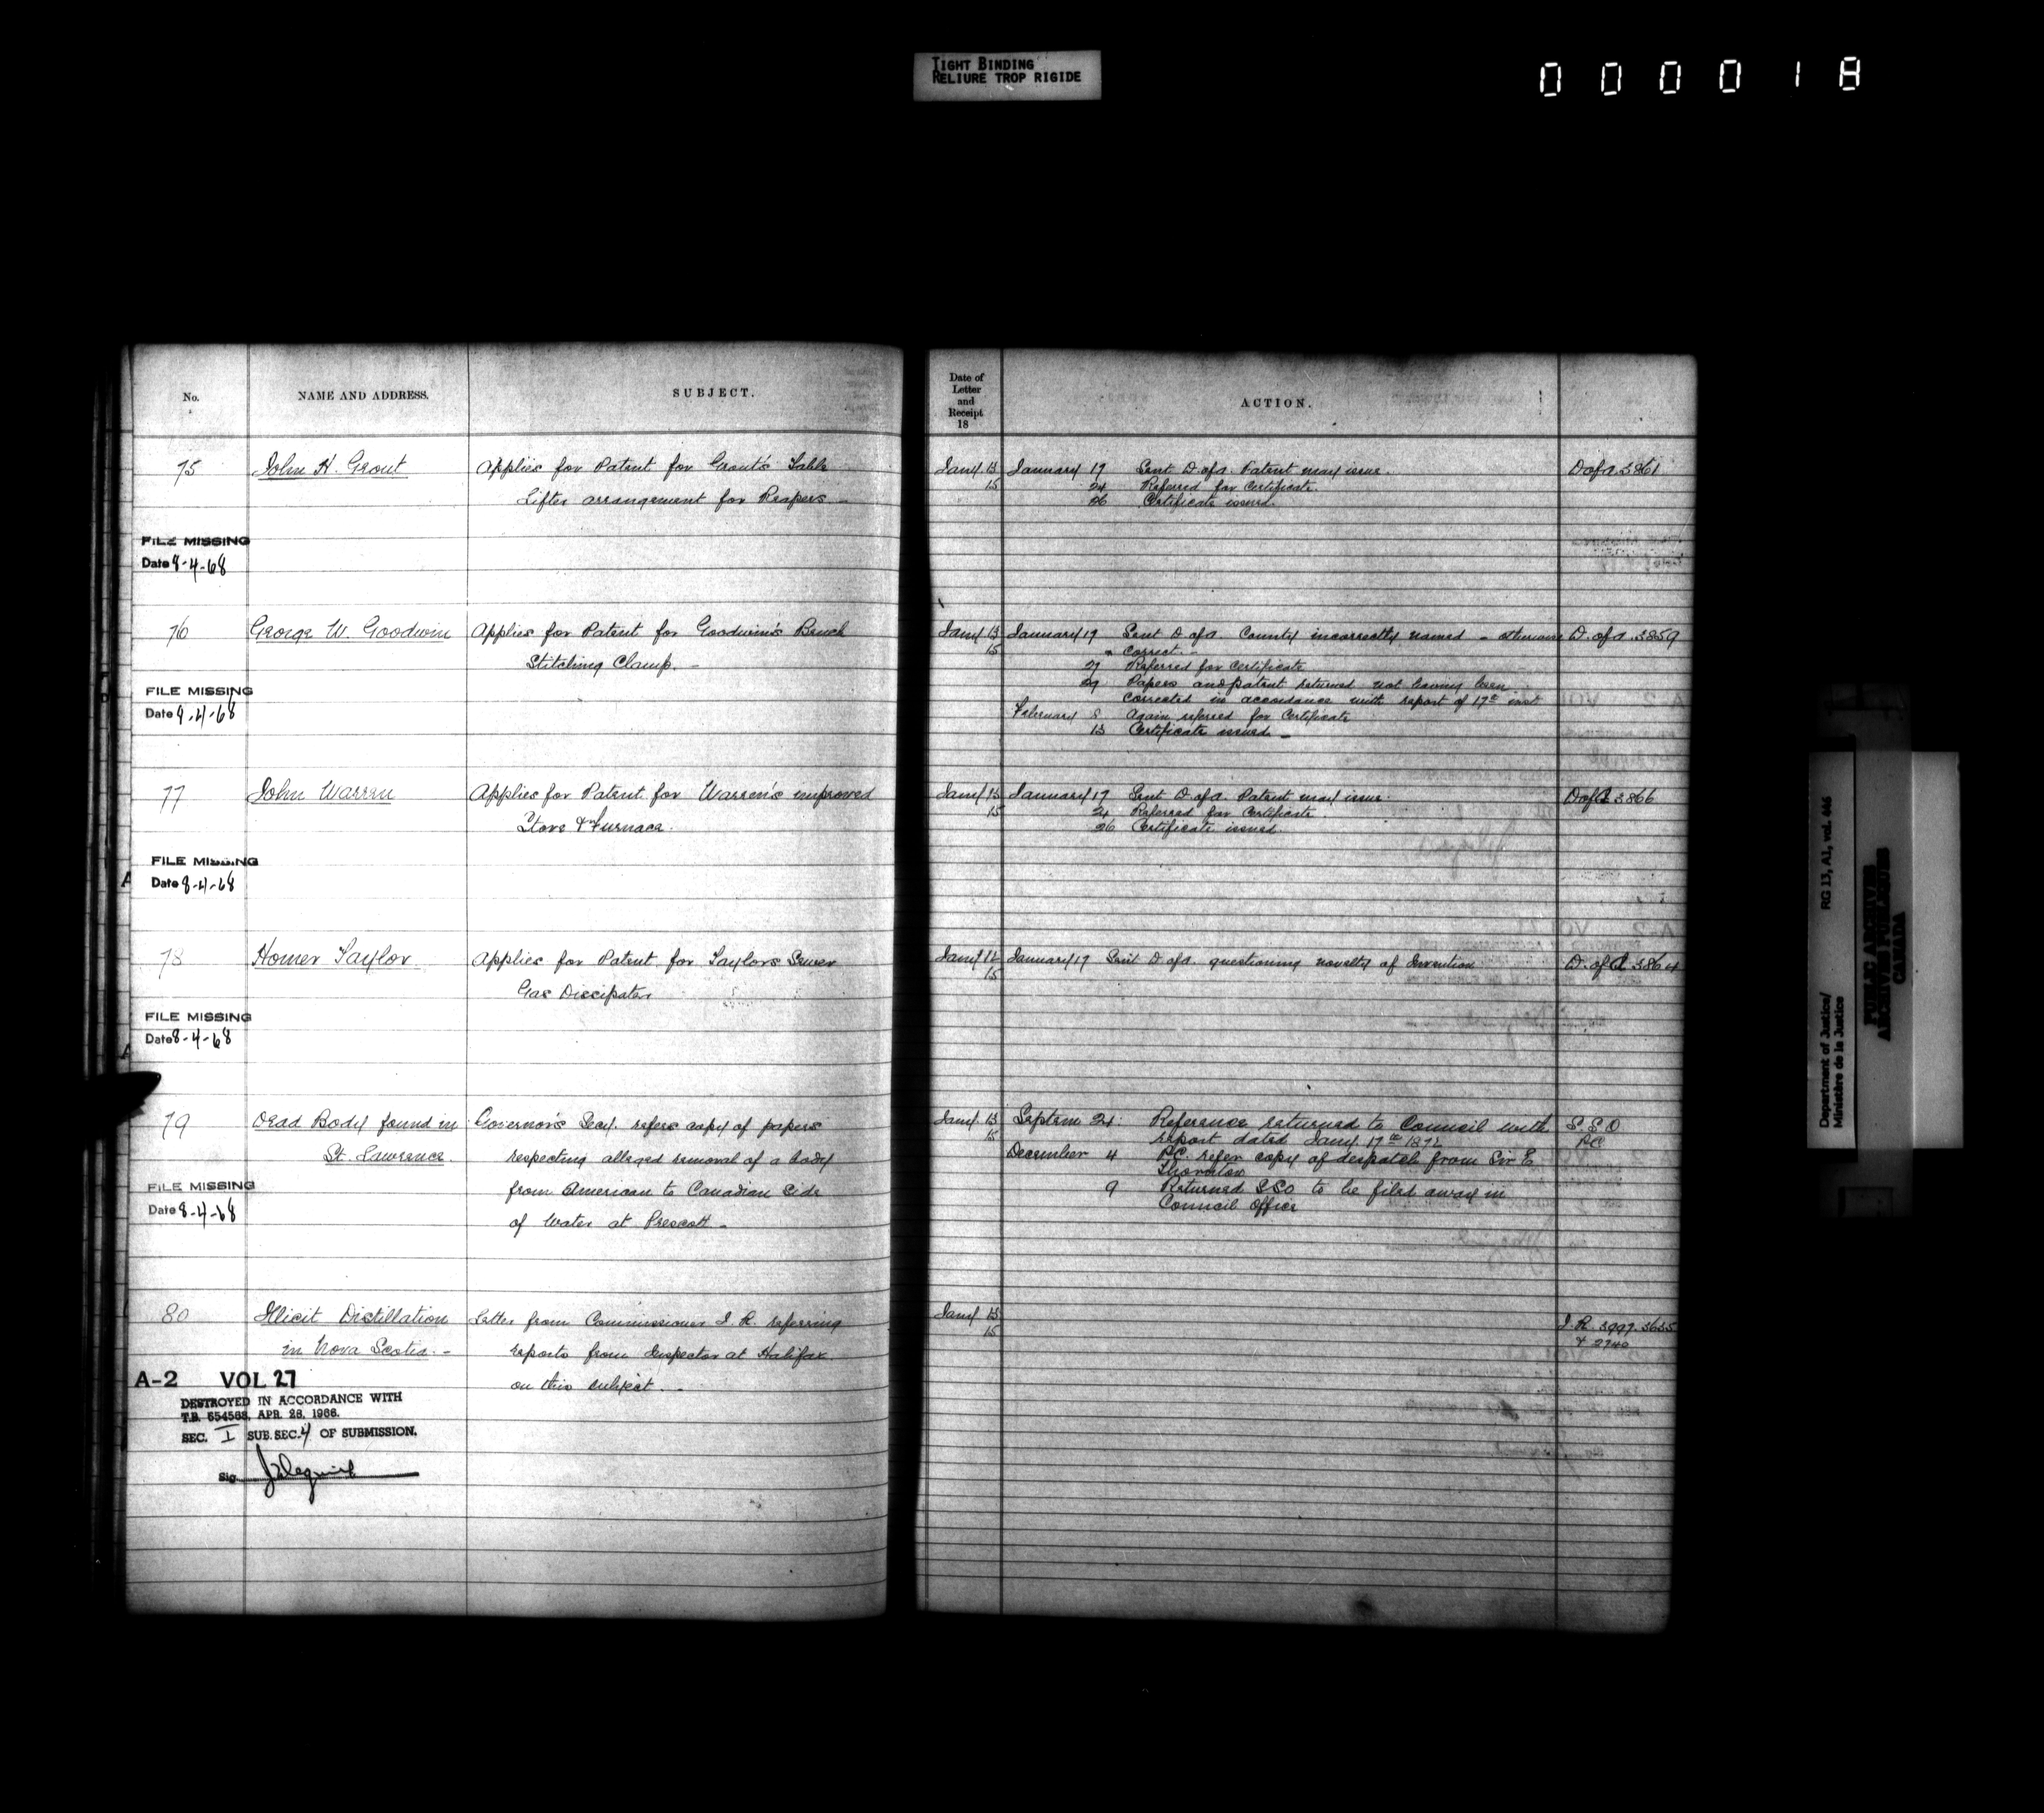 TIGHT BINDING
RELIURE TROP RIGIDE
0 0 0 0 1 8
No.
NAME AND ADDRESS.
SUBJECT.
75
John H. Grout
Applies for Patent for Grout's Table
Lifter arrangement for Reapers _
FILE MISSING
Date 8-4-68
76
George W. Goodwin
Applies for Patent for Goodwin's Bench
Stitching Clamp. -
FILE MISSING
Date 9-4-68
77
John Warren
Applies for Patent for Warren's improved
Stove & Furnace.
FILE MISSING
Date 8-4-68
78
Homer Taylor
Applies for Patent for Taylors Sewer
Gas Dissipator
FILE MISSING
Date 8-4-68
79
Dead Body found in
St. Lawrence.
Governor's Secy. refers copy of papers
respecting alleged removal of a body
from American to Canadian side
of water at Prescott -
FILE MISSING
Date 8-4-68
80
Illicit Distillation
in Nova Scotia. -
Letter from Commissioner I. R. referring
reports from Inspector at Halifax
on this subject. -
A-2 VOL 27
DESTROYED IN ACCORDANCE WITH
T.B. 654568, APR. 28, 1966.
SEC. I SUB. SEC. 4 OF SUBMISSION.
Sig.
Date of
Letter
and
Receipt
18
ACTION.
Jany 13 January 17 Sent D. of A. Patent may issue. D of A 3861
15 24 Referred for Certificate
26 Certificate issued.
Jany 13 January 17 Sent D. of A. County incorrectly named - otherwise D. of A. 3859
15 " Correct. -
27 Referred for Certificate
29 Papers and patent returned not having been
corrected in accordance with report of 17th inst
February 8 Again referred for Certificate
13 Certificate issued -
Jany 13 January 17 Sent D. of A. Patent may issue. D of A 3866
15 24 Referred for Certificate.
26 Certificate issued.
Jany 12 January 17 Sent D. of A. questioning novelty of Invention D. of A 3864
15
Jany 13 Septem 24. Reference returned to Council with S.S.O
15 report dated Jany. 17th 1872 P.C
December 4 P.C. refer copy of despatch from Sir E
Thornton
9 Returned S S O to be filed away in
Council Office
Jany 13
15
I. R. 3997. 3655
& 2740
Department of Justice/ RG 13, A1, vol. 446
Ministère de la Justice
PUBLIC ARCHIVES
ARCHIVES PUBLIQUES
CANADA